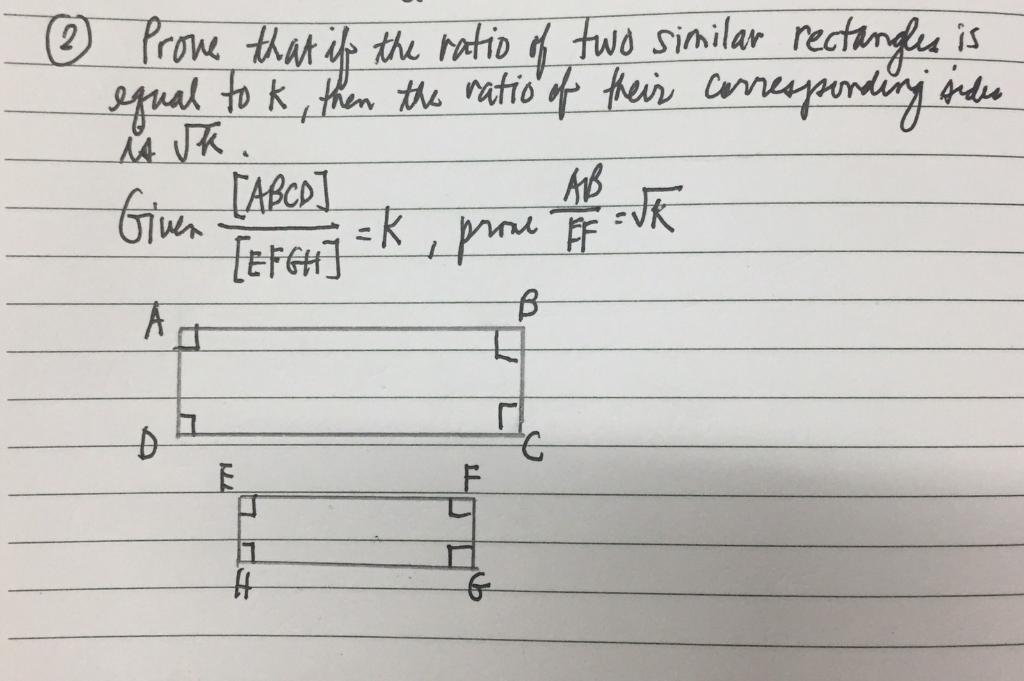 ② Prove that if the ratio of two similar rectangles is
equal to k, then the ratio of their corresponding sides
is √k.
Given [ABCD]/[EFGH] = k, prove AB/EF = √k
A B
D C
E F
H G